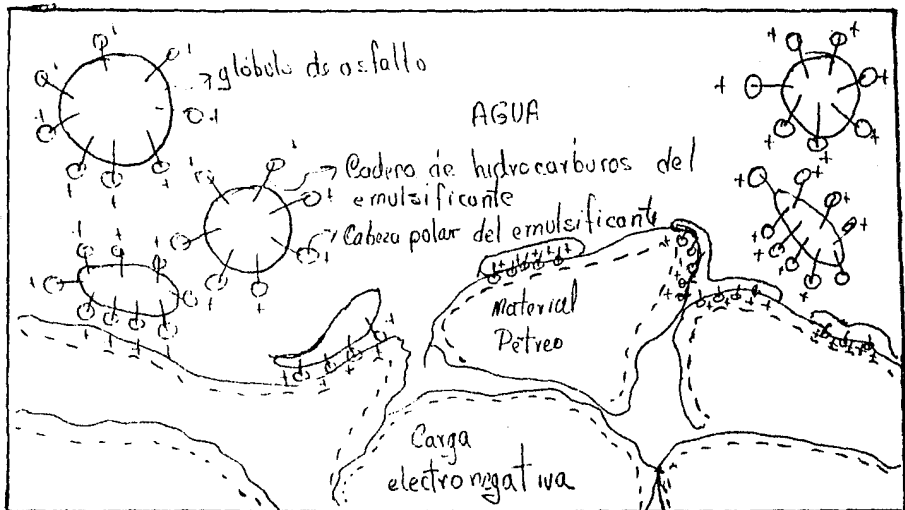 glóbulo de asfalto
AGUA
Cadena de hidrocarburos del
emulsificante
Cabeza polar del emulsificante
Material
Pétreo
Carga
electronegativa